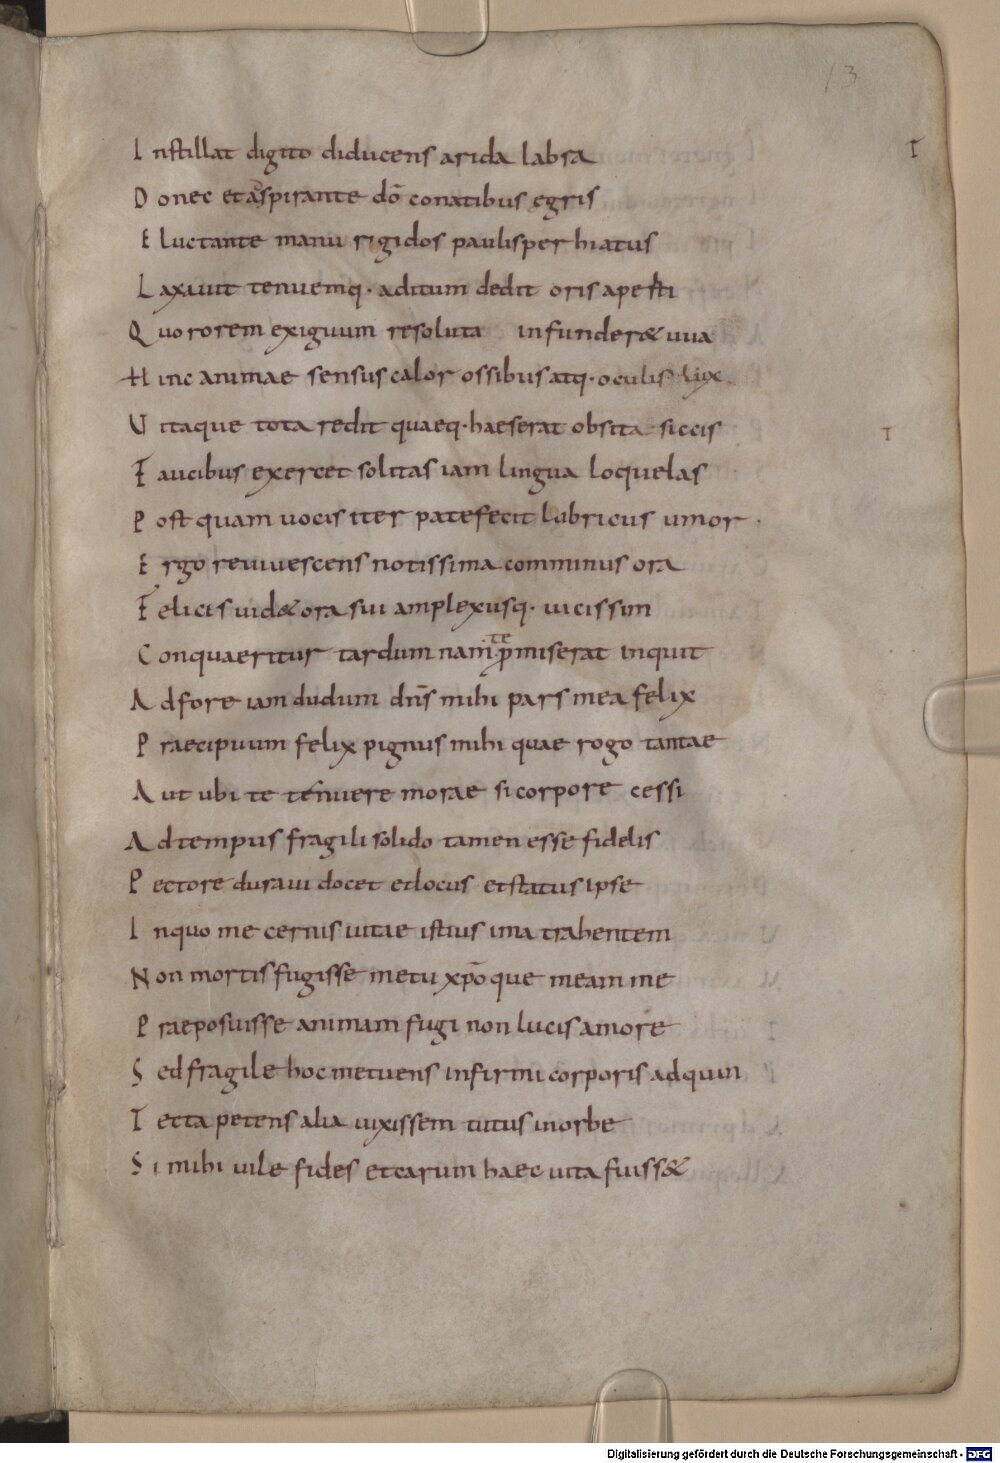 13
Instillat digito diducens arida labra
Donec et aspirante dō conatibus egris
Eluctante manu rigidos paulisper hiatus
Laxiuit tenuemq· aditum dedit oris aperti
Quo rorem exiguum resoluta infunder& uua
Hinc animae sensus calor ossibus atq· oculis lux
Uitaque tota redit quaeq· haeserat obsita siccis
Faucibus exercet solitas iam lingua loquelas
Post quam uocis iter patefecit lubricus umor·
Ergo reuiuescens notissima comminus ora
Felicis uid& ora sui amplexusq· uicissim
Conquaeritur tardum nam te p̄miserat inquit
Adfore iam dudum dn̄s mihi pars mea felix
Praecipuum felix pignus mihi quae rogo tantae
Aut ubi te tenuere morae si corpore cessi
Ad tempus fragili solido tamen esse fidelis
Pectore duraui docet et locus et status ipse
In quo me cernis uitae istius ima trahentem
Non mortis fugisse metu xp̄o que meam me
Praeposuisse animam fugi non lucis amore
Sed fragile hoc metuens infirmi corporis ad quin
Tecta petens alia uixissem tutus in orbe
Si mihi uile fides et carum haec uita fuiss&
Digitalisierung gefördert durch die Deutsche Forschungsgemeinschaft - DFG